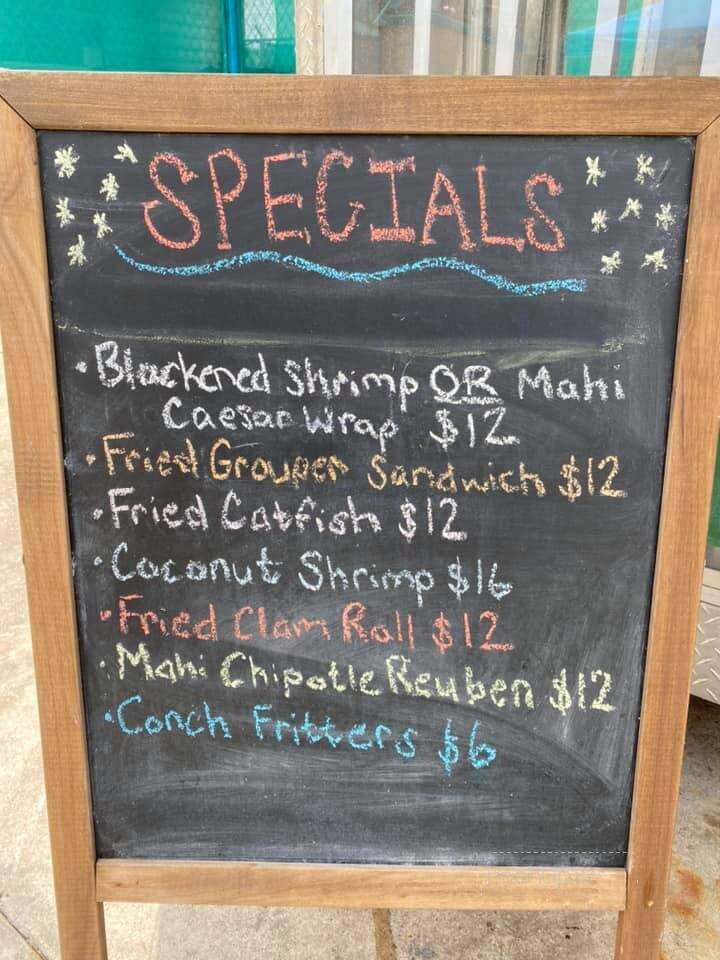 SPECIALS
• Blackened Shrimp OR Mahi
Caesar Wrap $12
• Fried Grouper Sandwich $12
• Fried Catfish $12
• Coconut Shrimp $16
• Fried Clam Roll $12
• Mahi Chipotle Reuben $12
• Conch Fritters $6